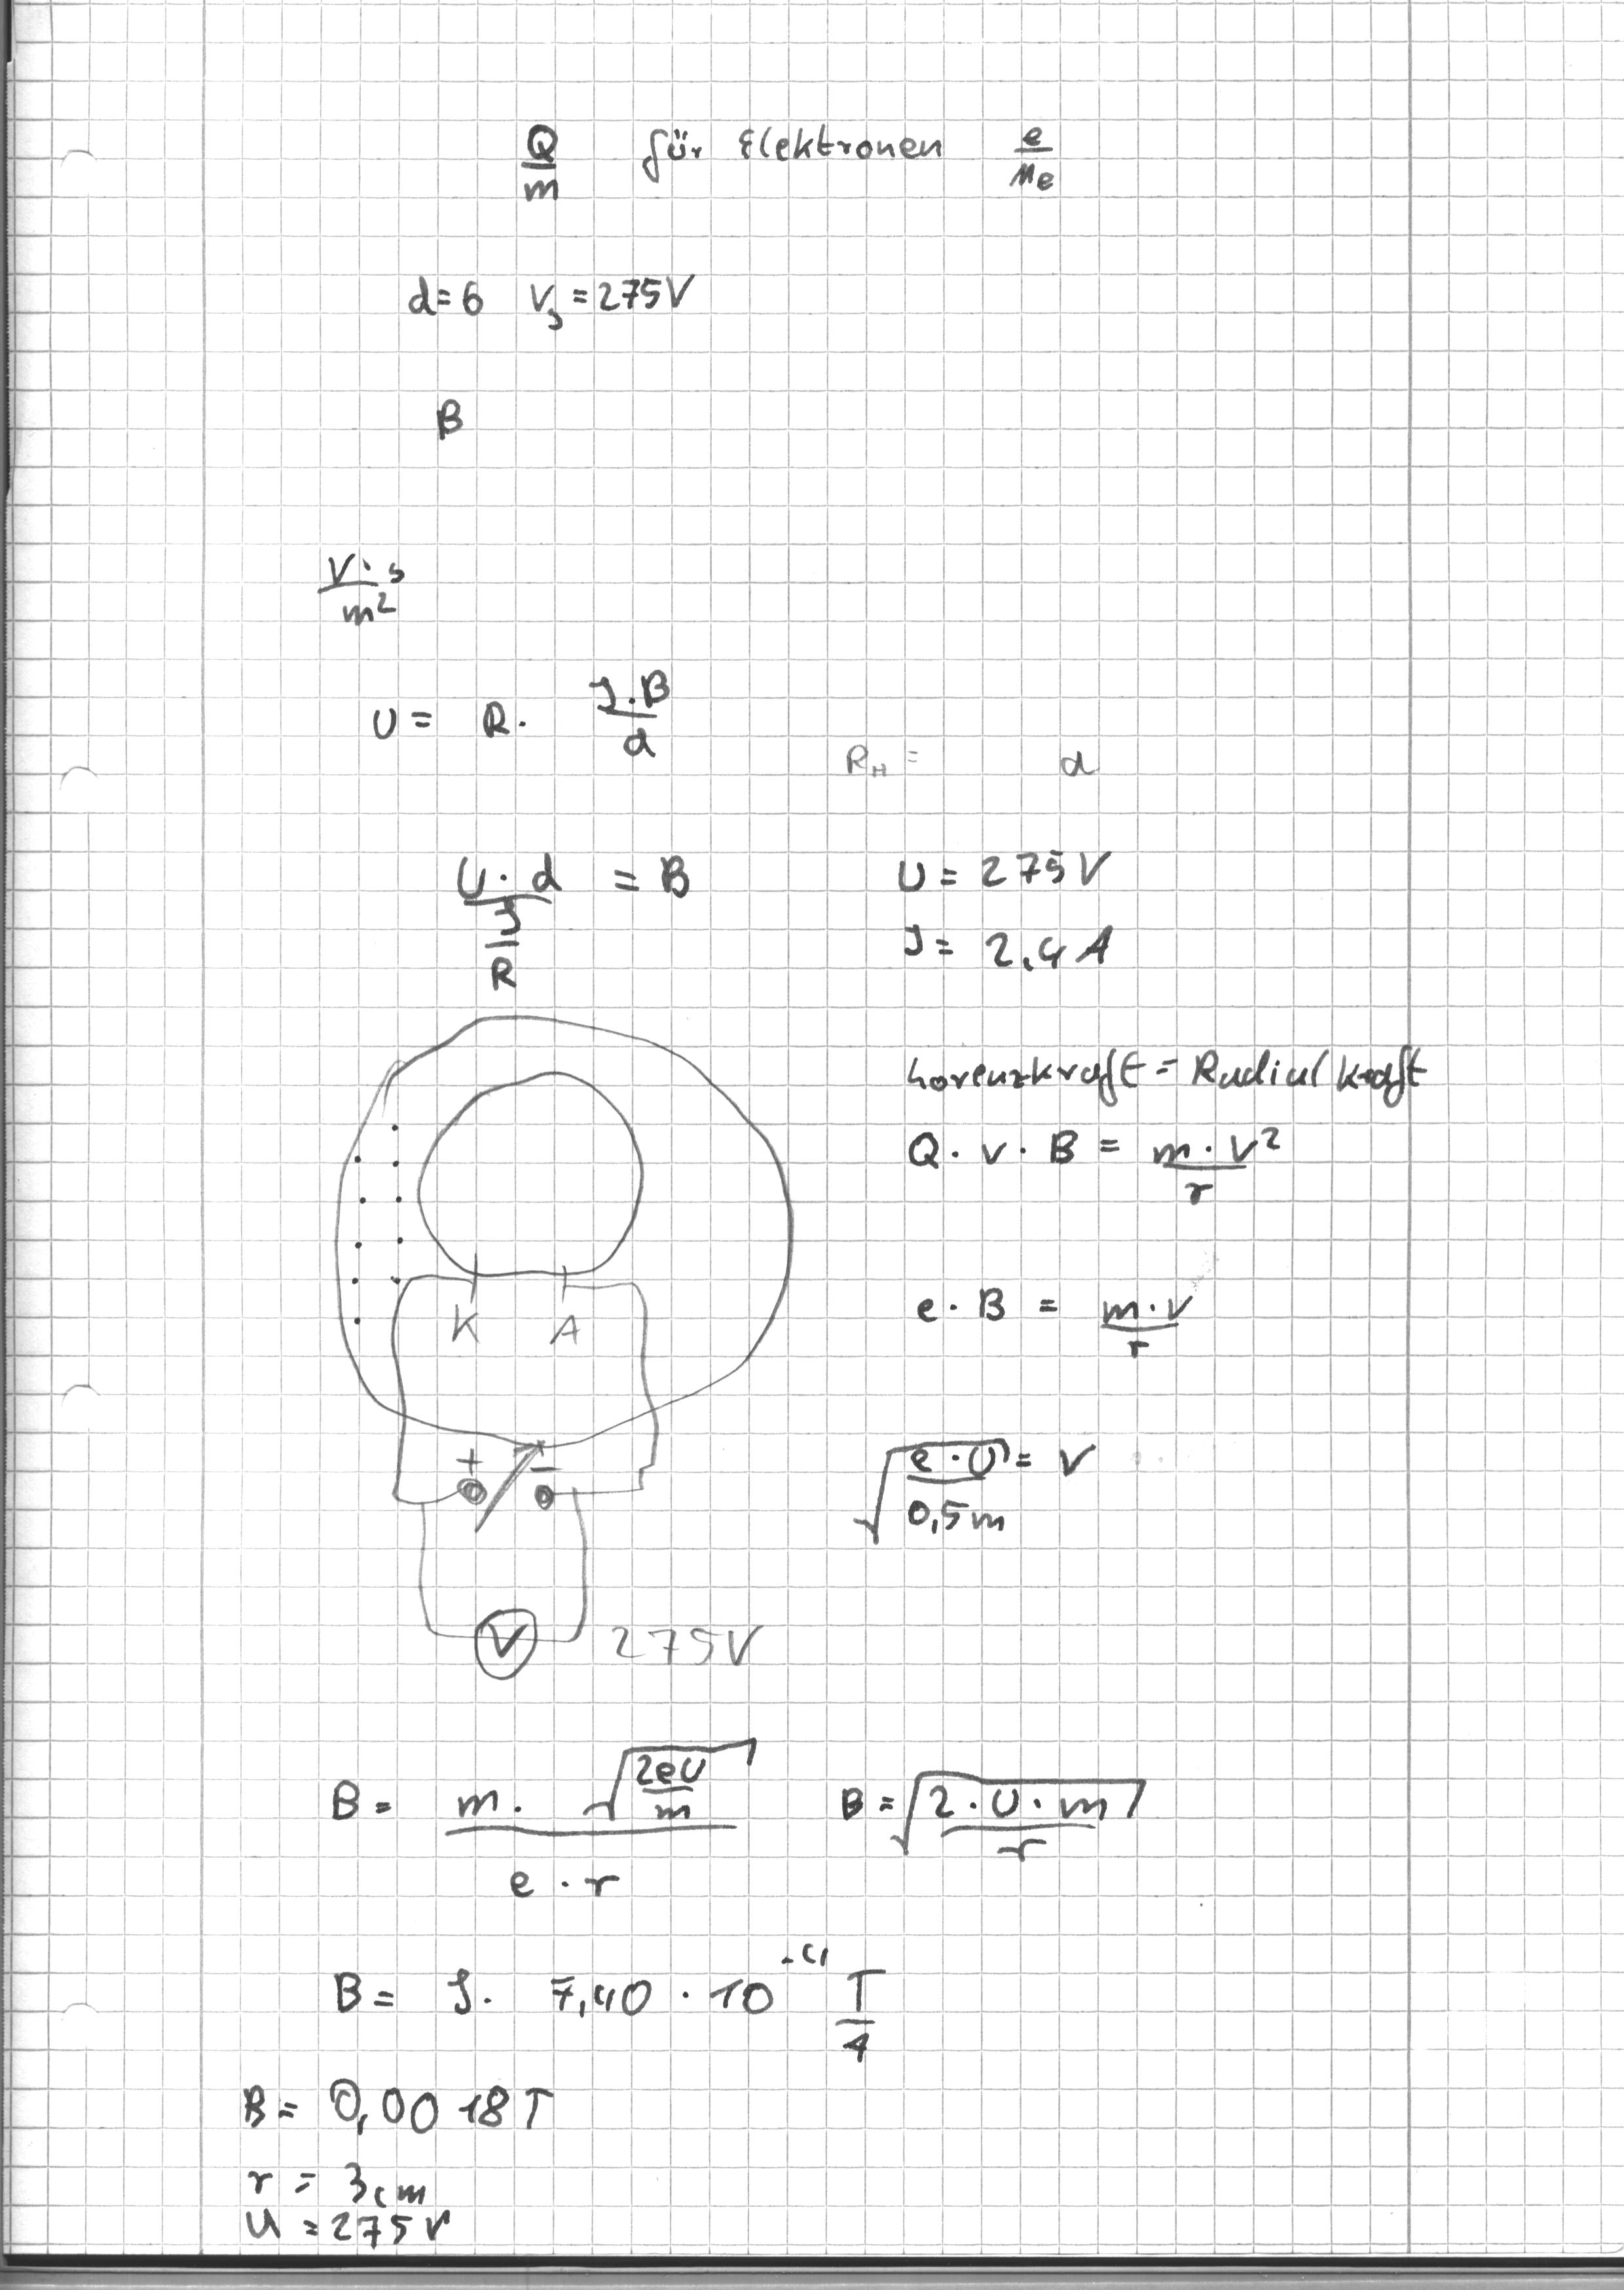 Q/m für Elektronen e/me
d=6 VJ = 275V
B
V·s/m²
U = R · J·B/d
RH = d
U·d/J/R = B
U = 275V
J = 2,4 A
Lorenzkraft = Radialkraft
Q · v · B = m·v²/r
e · B = m·v/r
K A
+ −
√(e·U/0,5m) = v
V 275V
B = m · √(2eU/m) / e · r
B = √(2·U·m/r)
B = J · 7,40 · 10⁻⁴ T/A
B = 0,0018T
r = 3cm
U = 275V